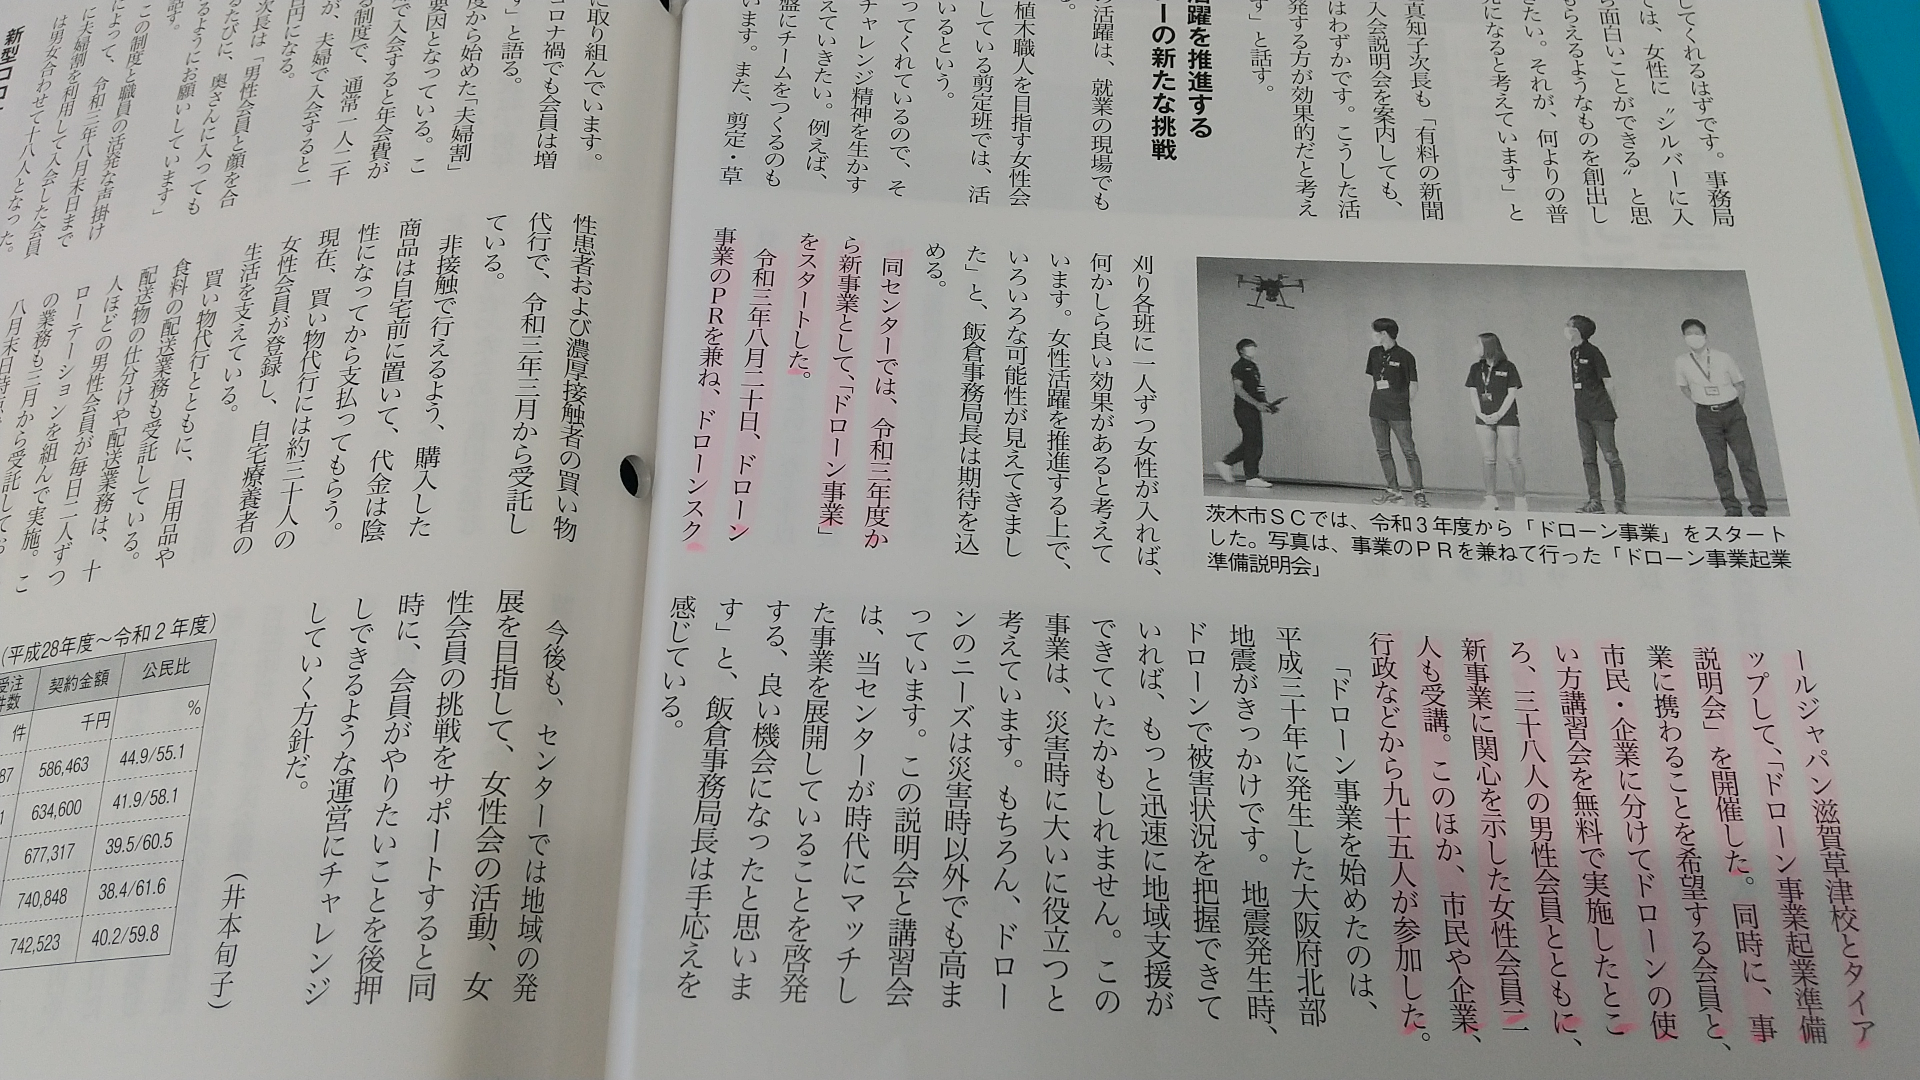 してくれるはずです。事務局
では、女性に〝シルバーに入
ら面白いことができる〟と思
もらえるようなものを創出し
きたい。それが、何よりの普
元になると考えています」と
真知子次長も「有料の新聞
入会説明会を案内しても、
はわずかです。こうした活
発する方が効果的だと考え
す」と話す。
活躍を推進する
ーの新たな挑戦
の活躍は、就業の現場でも
植木職人を目指す女性会
している剪定班では、活
いるという。
ってくれているので、そ
チャレンジ精神を生かす
えていきたい。例えば、
盤にチームをつくるのも
います。また、剪定・草
茨木市SCでは、令和3年度から「ドローン事業」をスタート
した。写真は、事業のPRを兼ねて行った「ドローン事業起業
準備説明会」
刈り各班に一人ずつ女性が入れば、
何かしら良い効果があると考えて
います。女性活躍を推進する上で、
いろいろな可能性が見えてきまし
た」と、飯倉事務局長は期待を込
める。
同センターでは、令和三年度か
ら新事業として、「ドローン事業」
をスタートした。
令和三年八月二十日、ドローン
事業のPRを兼ね、ドローンスク
ールジャパン滋賀草津校とタイア
ップして、「ドローン事業起業準備
説明会」を開催した。同時に、事
業に携わることを希望する会員と、
市民・企業に分けてドローンの使
い方講習会を無料で実施したとこ
ろ、三十八人の男性会員とともに、
新事業に関心を示した女性会員二
人も受講。このほか、市民や企業、
行政などから九十五人が参加した。
「ドローン事業を始めたのは、
平成三十年に発生した大阪府北部
地震がきっかけです。地震発生時、
ドローンで被害状況を把握できて
いれば、もっと迅速に地域支援が
できていたかもしれません。この
事業は、災害時に大いに役立つと
考えています。もちろん、ドロー
ンのニーズは災害時以外でも高ま
っています。この説明会と講習会
は、当センターが時代にマッチし
た事業を展開していることを啓発
する、良い機会になったと思いま
す」と、飯倉事務局長は手応えを
感じている。
に取り組んでいます。
コロナ禍でも会員は増
す」と語る。
度から始めた「夫婦割」
要因となっている。こ
で入会すると年会費が
る制度で、通常一人二千
が、夫婦で入会すると一
円になる。
次長は「男性会員と顔を合
るたびに、奥さんに入っても
るようにお願いしています」
話す。
この制度と職員の活発な声掛け
によって、令和三年八月末日まで
に夫婦割を利用して入会した会員
は男女合わせて十八人となった。
新型コロ
性患者および濃厚接触者の買い物
代行で、令和三年三月から受託し
ている。
非接触で行えるよう、購入した
商品は自宅前に置いて、代金は陰
性になってから支払ってもらう。
現在、買い物代行には約三十人の
女性会員が登録し、自宅療養者の
生活を支えている。
買い物代行とともに、日用品や
食料の配送業務も受託している。
配送物の仕分けや配送業務は、十
人ほどの男性会員が毎日二人ずつ
ローテーションを組んで実施。こ
の業務も三月から受託してお
今後も、センターでは地域の発
展を目指して、女性会の活動、女
性会員の挑戦をサポートすると同
時に、会員がやりたいことを後押
しできるような運営にチャレンジ
していく方針だ。
（井本旬子）
(平成28年度～令和2年度)
受注件数 契約金額 公民比
件 千円 %
87 586,463 44.9/55.1
1 634,600 41.9/58.1
677,317 39.5/60.5
740,848 38.4/61.6
742,523 40.2/59.8